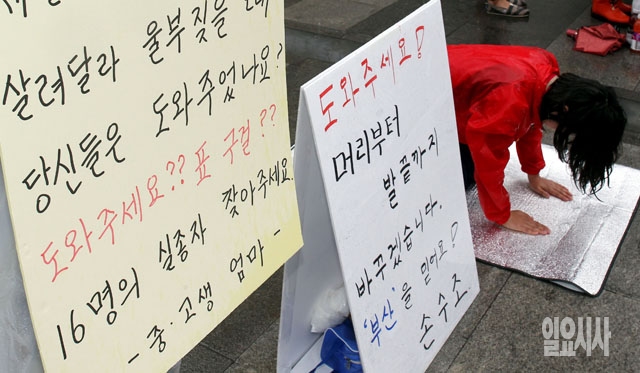 살려달라 울부짖을 때
당신들은 도와주었나요?
도와주세요?? 표 구걸??
16명의 실종자 찾아주세요.
- 중·고생 엄마 -
도와주세요!
머리부터
발끝까지
바꾸겠습니다.
'부산'을 믿어요!
손수조
일요시사